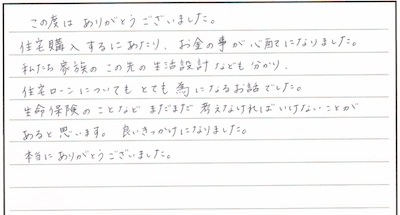 この度は ありがとうございました。
住宅購入するにあたり、お金の事が心配になりました。
私たち家族の この先の 生活設計なども分かり、
住宅ローンについても とても 為になるお話でした。
生命保険のことなど まだまだ 考えなければいけないことが
あると思います。 良いきっかけになりました。
本当にありがとうございました。